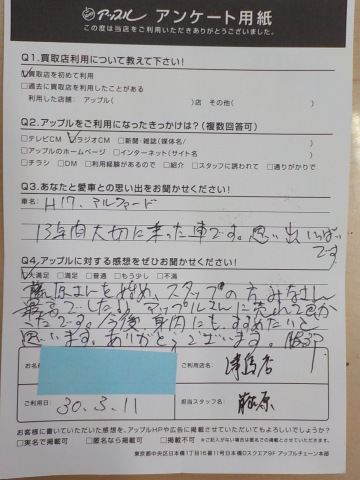 アップル アンケート用紙
この度は当店をご利用いただきありがとうございました。
Q1.買取店利用について教えて下さい!
☑買取店を初めて利用
□過去に買取店を利用したことがある
利用した店舗: アップル( )店 その他( )
Q2.アップルをご利用になったきっかけは?(複数回答可)
□テレビCM ☑ラジオCM □新聞・雑誌(媒体名/ )
□アップルのホームページ □インターネット(サイト名 )
□チラシ □DM □利用経験があるので □紹介 □スタッフに誘われて □通りがかりで
Q3.あなたと愛車との思い出をお聞かせください!
車名: H17. アルファード
13年間大切に乗った車です。思い出いっぱい
です
Q4.アップルに対する感想をぜひお聞かせください!
☑大満足 □満足 □普通 □もう少し □不満
藤原さんを始め、スタッフの方みなさん
最高でした。アップルさんに売れて良か
ったです。今後身内にもすすめたいと
思います。ありがとうございます。服部
お名前
ご利用店名: 津島店
ご利用日: 30.3.11
担当スタッフ名: 藤原
お客様に書いていただいた感想を、アップルHPや広告に掲載させていただいてもよろしいでしょうか?
□実名で掲載可 □匿名なら掲載可 □掲載不可 ※ご記入がない場合は匿名での掲載とさせていただきます。
東京都中央区日本橋1丁目16番11号日本橋Dスクエア9F アップルチェーン本部